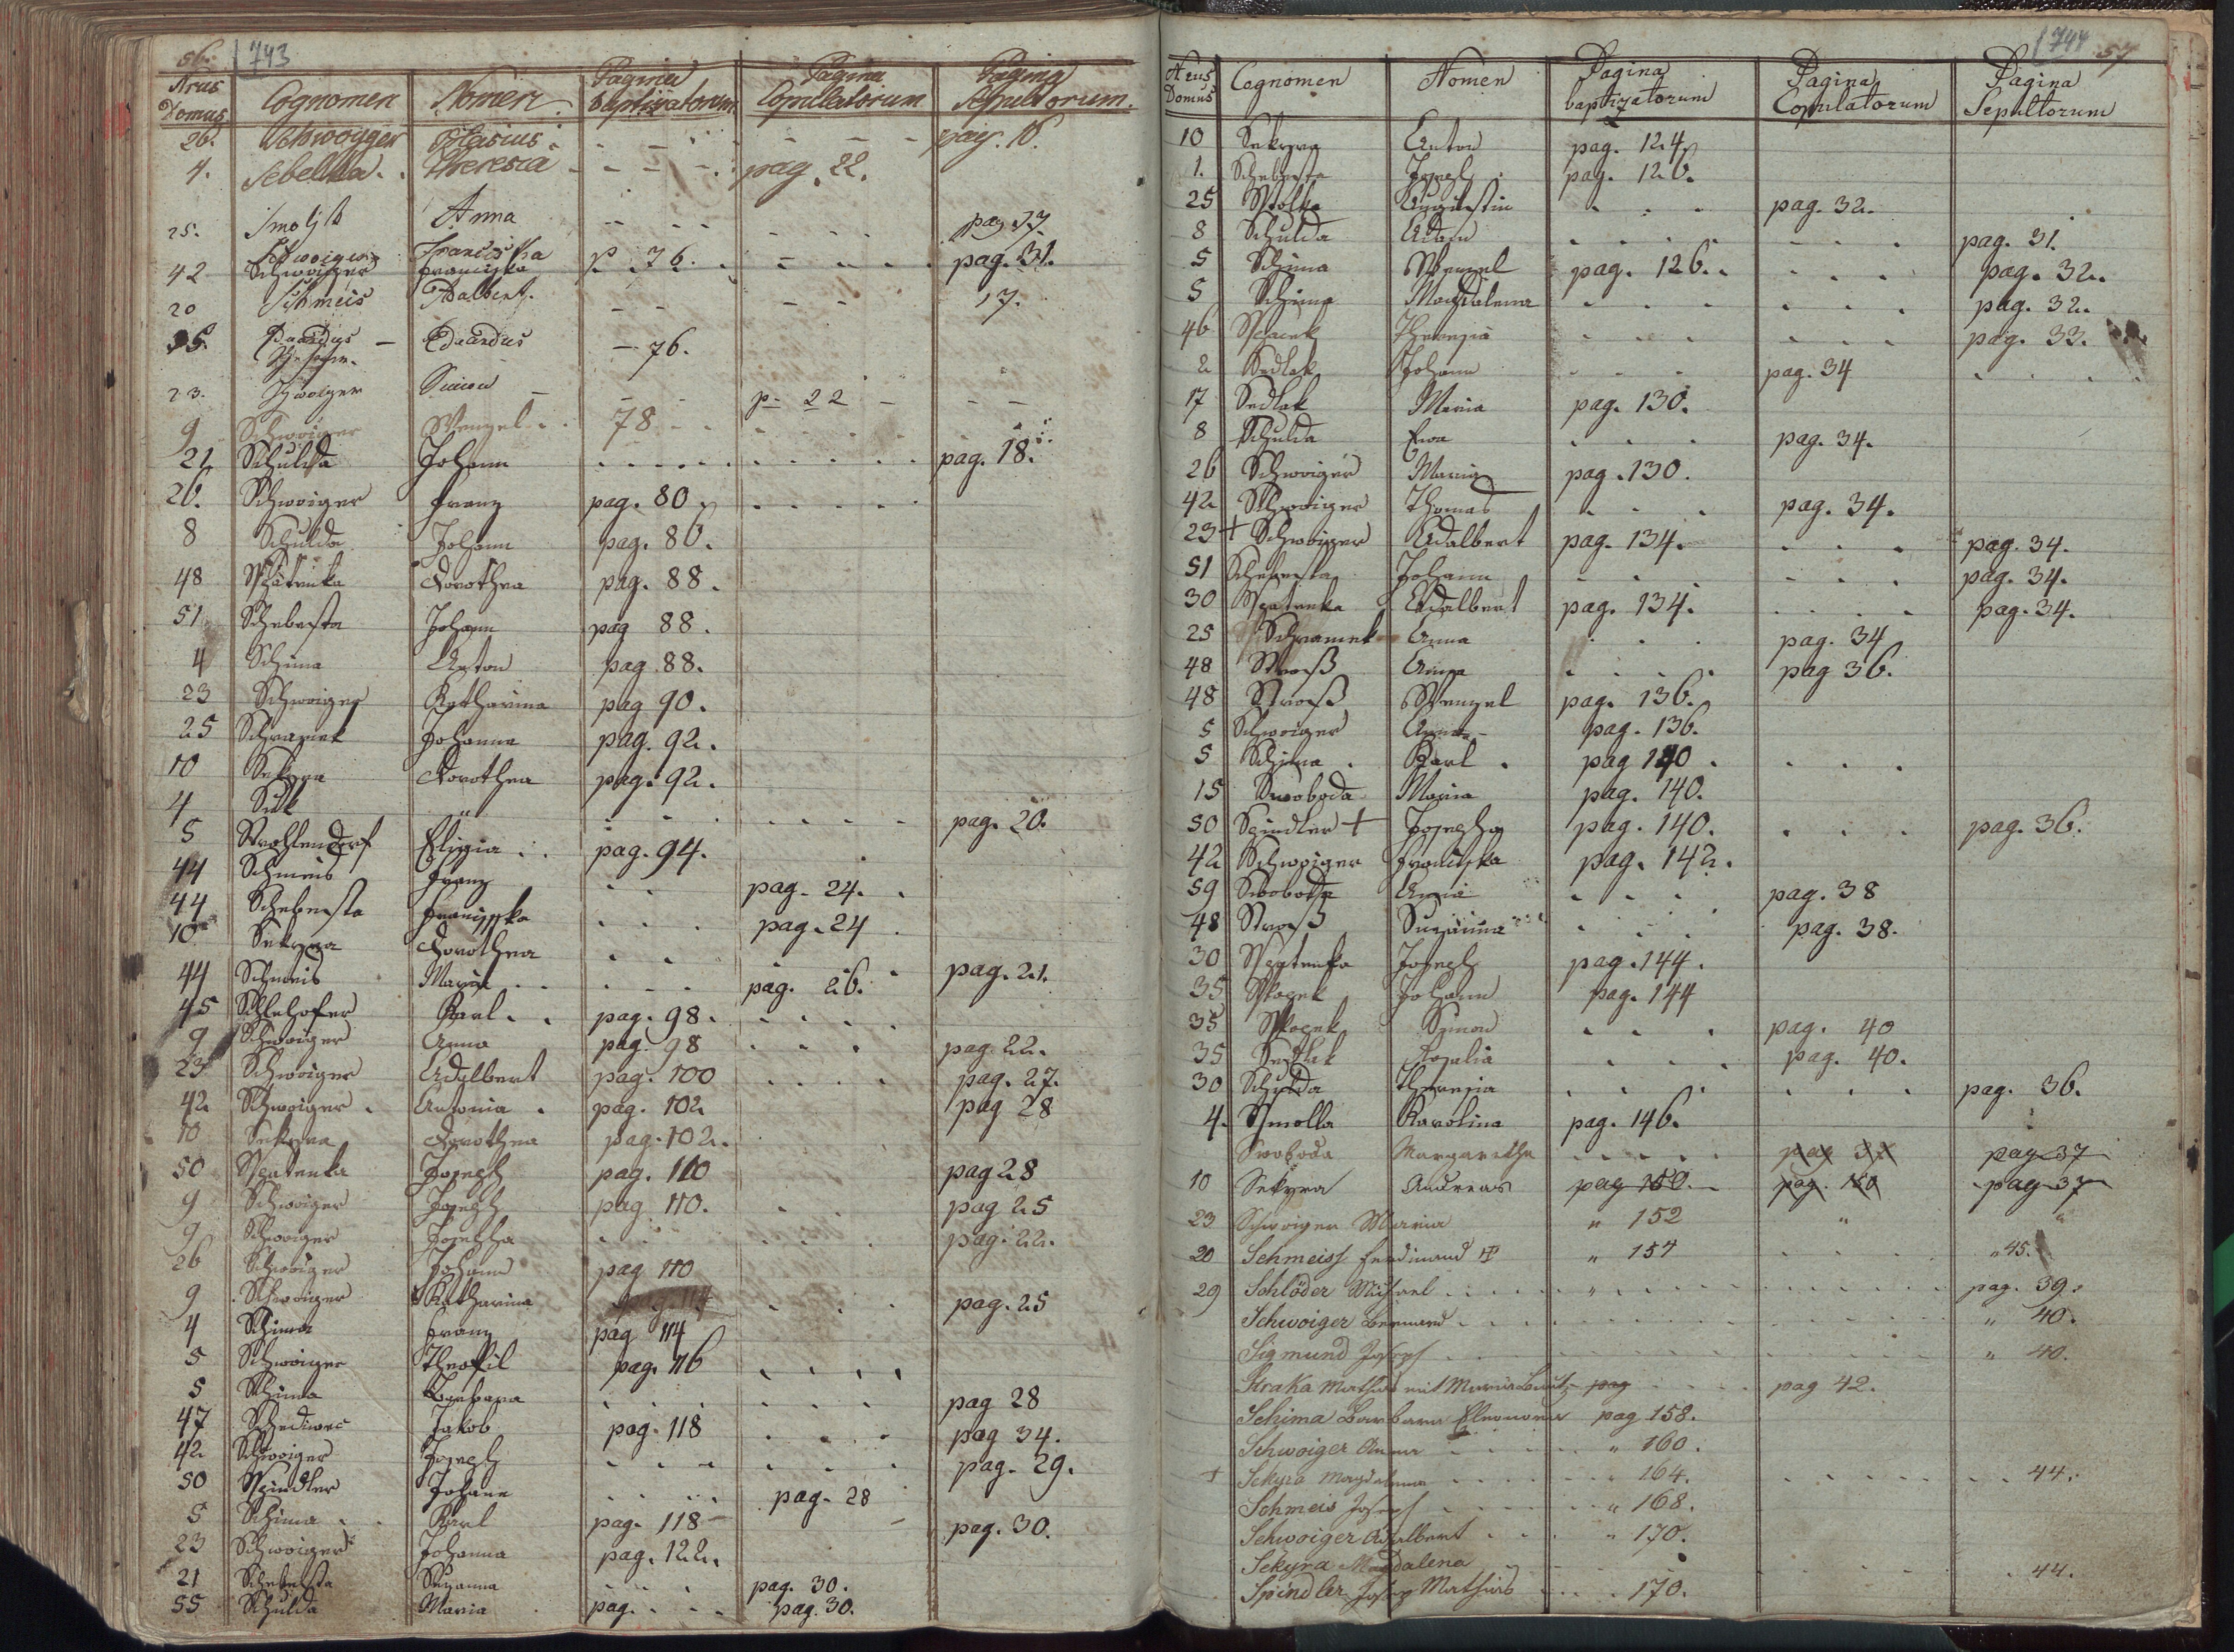 56. 743
Nrus Domus Cognomen Nomen Pagina baptizatorum Pagina Copulatorum Pagina Sepultorum.
26. Schwoyger Blasius pag. 16.
4. Sebelka Theresia pag. 22.
25. Anna pag 17.
42 Schwoiger Franciska p. 76. pag. 31.
20 Schmeis Adalbert. 17.
Eduardus 76.
23. Schwoiger Simon p. 22
9 Schwoiger Wenzel 78
21 Schulda Johann pag. 18.
26. Schwoiger Franz pag. 80
8 Schulda Johann pag. 86.
48 Spatenka Dorothea pag. 88.
51 Schebesta Johann pag 88.
4 Schima Anton pag. 88.
23 Schwoiger Katharina pag 90.
25 Schramek Johanna pag. 92.
10 Sekyra Dorothea pag. 92.
4 Suk " pag. 20.
5 Strohlendorf Eligia pag. 94.
44 Schmeis Franz pag. 24.
44 Schebesta Franziska pag. 24
10 Sekyra Dorothea pag. 21.
44 Schmeis Maria pag. 26.
45 Schlehofer Karl pag. 98.
9 Schwoiger Anna pag. 98 pag. 22.
23 Schwoiger Adalbert pag. 100 pag. 27.
42 Schwoiger Antonia pag. 102 pag 28
10 Sekyra Dorothea pag. 102.
50 Spatenka Joseph pag. 110 pag 28
9 Schwoiger Joseph pag 110. pag 25
9 Schwoiger Josepha pag. 22.
26 Schwoiger Johann pag 110
9 Schwoiger Katharina pag. 25
4 Schima Franz pag 114
5 Schwoiger Theofil pag. 116
5 Schima Barbara pag 28
47 Schediwec Jakob pag. 118 pag 34.
42 Schwoiger Joseph pag. 29.
50 Spindler Johann pag. 28
5 Schima Karl pag. 118 pag. 30.
23 Schwoiger Johanna pag. 122.
21 Schebesta Susanna pag. 30.
55 Schulda Maria pag. pag. 30.
744 57
Nrus Domus Cognomen Nomen Pagina baptizatorum Pagina Copulatorum Pagina Sepultorum
10 Sekyra Anton pag. 124.
1. Schebesta Joseph pag. 126.
25 Augustin pag. 32.
8 Schulda Adam pag. 31.
5 Schima Wenzel pag. 126. pag. 32.
5 Schima Magdalena pag. 32.
46 Theresia pag. 33.
2 Sedlak Johann pag. 34
17 Sedlak Maria pag. 130.
8 Schulda Eva pag. 34.
26 Schwoiger Maria pag. 130.
42 Schwoiger Thomas pag. 34.
23 + Schwoiger Adalbert pag. 134. pag. 34.
51 Schebesta Johann pag. 34.
30 Spatenka Adalbert pag. 134. pag. 34.
25 Schramek Anna pag. 34
48 Stroß Anna pag 36.
48 Stroß Wenzel pag. 136.
5 Schwoiger Anna pag. 136.
5 Schima Karl pag 140
15 Swoboda Maria pag. 140.
50 Spindler + Josepha pag. 140. pag. 36.
42 Schwoiger Franciska pag. 142.
59 Swoboda Anna pag. 38
48 Stroß Susanna pag. 38.
30 Spatenka Joseph pag. 144.
35 Johann pag. 144
35 Simon pag. 40
35 Sedlak Rosalia pag. 40.
30 Schulda Theresia pag. 36.
4. Smolla Karolina pag. 146.
Swoboda Margaretha pag 37 pag 37
10 Sekyra Andreas pag 150. pag. 150 pag 37
23 Schwoiger Maria " 152 " "
20 Schmeiss Ferdinand " 154 " 45.
29 Schlöder Michael " pag. 39.
Schwoiger Bernard " 40.
Sigmund Josef " 40.
Straka Mathias mit Maria pag pag 42.
Schima Barbara Eleonora pag 158.
Schwoiger Anna " 160.
+ Sekyra Magdalena " 164. 44.
Schmeis Josef " 168.
Schwoiger Adalbert " 170.
Sekyra Magdalena 44.
Spindler Josef Mathias 170.